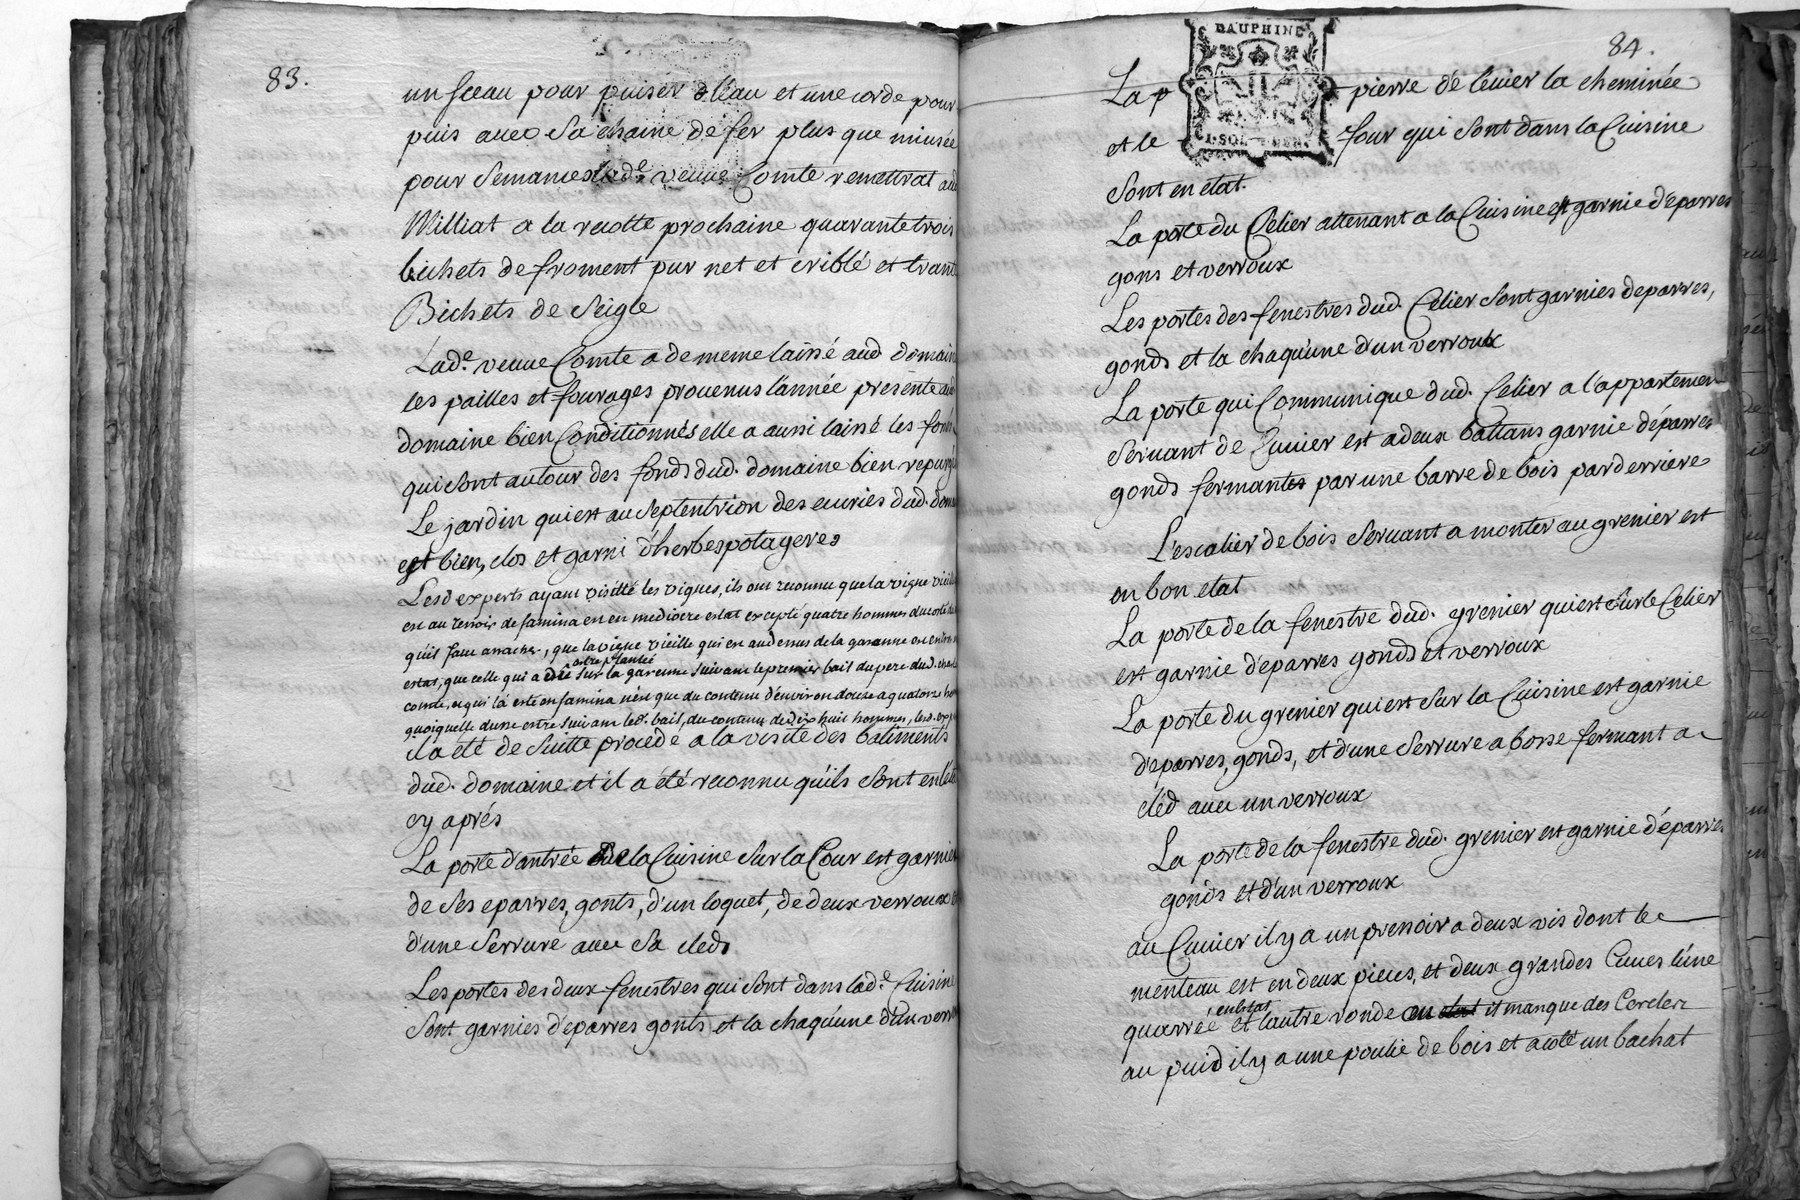 83.
un sceau pour puiser d l'eau et une corde pour
puis avec sa chaine de fer plus que miusée
pour semances lade. veuve Comte remettrat aud
Milliat a la recolte prochaine quarante trois
bichets de froment pur net et criblé et trante
Bichets de Seigle
Lade. veuve Comte a de meme laissé aud domaine
les pailles et fourages provenus l'année presente aud
domaine bien Conditionnés elle a aussi laissé les
qui sont autour des fonds dud. domaine bien repurgés
Le jardin qui est au septentrion des ecuries dud. dom
est bien, clos et garni d'herbes potageres
Lesd experts ayant visitté les vignes, ils ont reconnu que la vigne vieille
est au terroir de famina en en mediocre estat excepté quatre hommes du costé
quil faut arracher, que la vigne vieille qui est audessus de la garanne est en bon
estre plantée
estat, que celle qui a dû sur la garenne suivant le premier bail du pere dud.
comte, et qui là esté en famina n'est que du contenu d'environ douze a quatorze
quoiquelle dusse estre suivant led. bail, du contenu de dix huit hommes, lesd. exp
il a été de suitte procedé a la visite des batiments
dud. domaine et il a été reconnu qu'ils sont en l'état
cy aprés
La porte d'antrée de la Cuisine sur la Cour est garnie
de ses eparres, gonts, d'un loquet, de deux verroux et
d'une serrure avec sa cled
Les portes des deux fenestres qui sont dans lade. Cuisine
sont garnies d'eparres gonts et la chaqu'une d'un verrou
84.
DAUPHINÉ
La p pierre de levier la cheminée
et le four qui sont dans la Cuisine
sont en etat.
La porte du Celier attenant a la Cuisine est garnie d'eparres
gons et verroux
Les portes des fenestres dud. Celier sont garnies deparres,
gonds et la chaqu'une d'un verroux
La porte qui Communique dud. Celier a l'appartement
servant de Cuvier est a deux battans garnie d'éparres
gonds fermantes par une barre de bois par derriere
L'escalier de bois servant a monter au grenier est
en bon etat
La porte de la fenestre dud. grenier qui est sur le Celier
est garnie d'eparres gonds et verroux
La porte du grenier qui est sur la Cuisine est garnie
d'eparres, gonds, et d'une serrure a bosse fermant a
cled avec un verroux
La porte de la fenestre dud. grenier est garnie d'éparres
gonds et d'un verroux
au Cuvier il y a un pressoir a deux vis dont le
menteau est en deux pieces, et deux grandes Cuves l'une
en etat
quarrée et l'autre ronde en etat il manque des Cercles
au puid il y a une poulie de bois et a coté un bachat